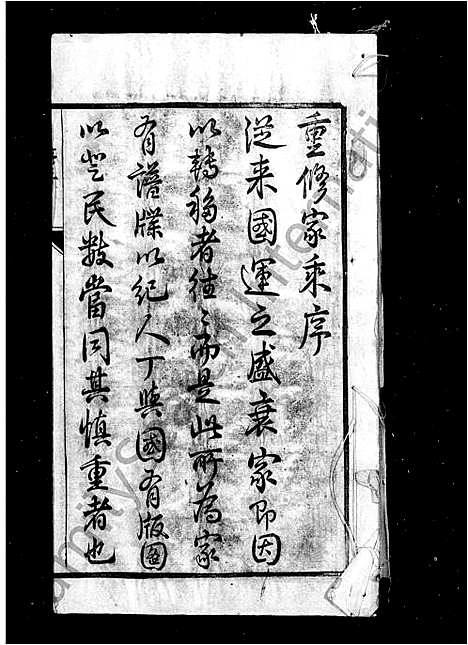 重修家乘序
從来國運之盛衰家即因
以轉移者往〻而是此所為家
有譜牒以紀人丁與國有版圖
以登民数當同其慎重者也